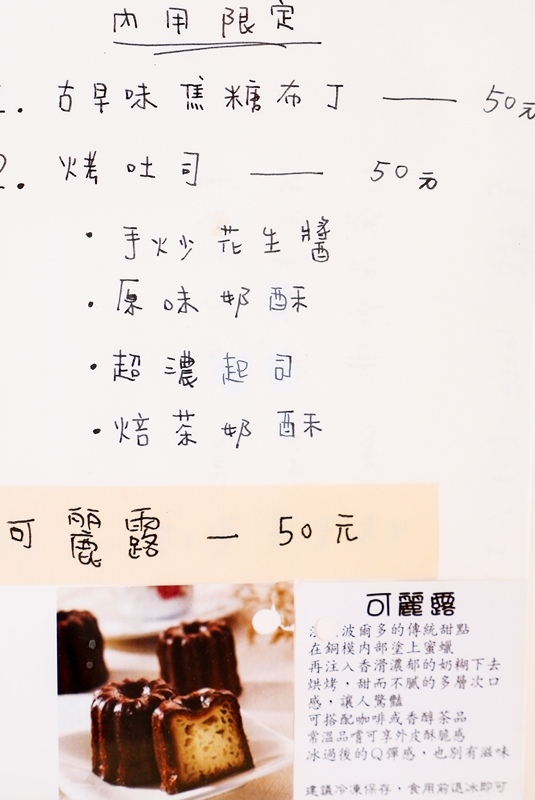 內用限定
1. 古早味焦糖布丁 —— 50元
2. 烤吐司 —— 50元
• 手炒花生醬
• 原味奶酥
• 超濃起司
• 焙茶奶酥
可麗露 — 50元
可麗露
波爾多的傳統甜點
在銅模內部塗上蜜蠟
再注入香滑濃郁的奶糊下去
烘烤,甜而不膩的多層次口
感,讓人驚豔
可搭配咖啡或香醇茶品
常溫品嚐可享外皮酥脆感
冰過後的Q彈感,也別有滋味
建議冷凍保存,食用前退冰即可